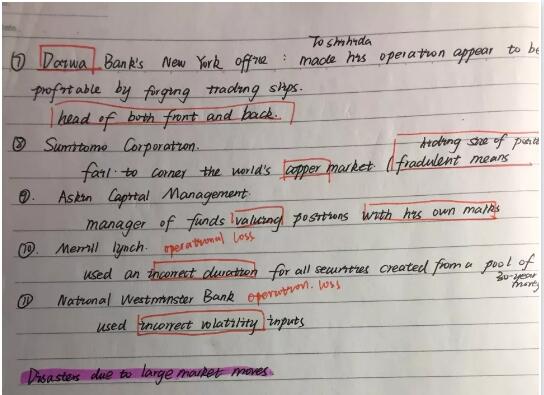 Toshihida
⑦ Daiwa Bank's New York office : made his operation appear to be
profitable by forging trading slips.
head of both front and back.
⑧ Sumitomo Corporation. hiding size of
fail to corner the world's copper market (fradulent means
⑨. Askin Capital Management
manager of funds valuing positions with his own marks
⑩. Merrill lynch. operational loss
used an incorrect duration for all securities created from a pool of
30-year
⑪ National Westminster Bank operation. loss
used incorrect volatility inputs
Disasters due to large market moves